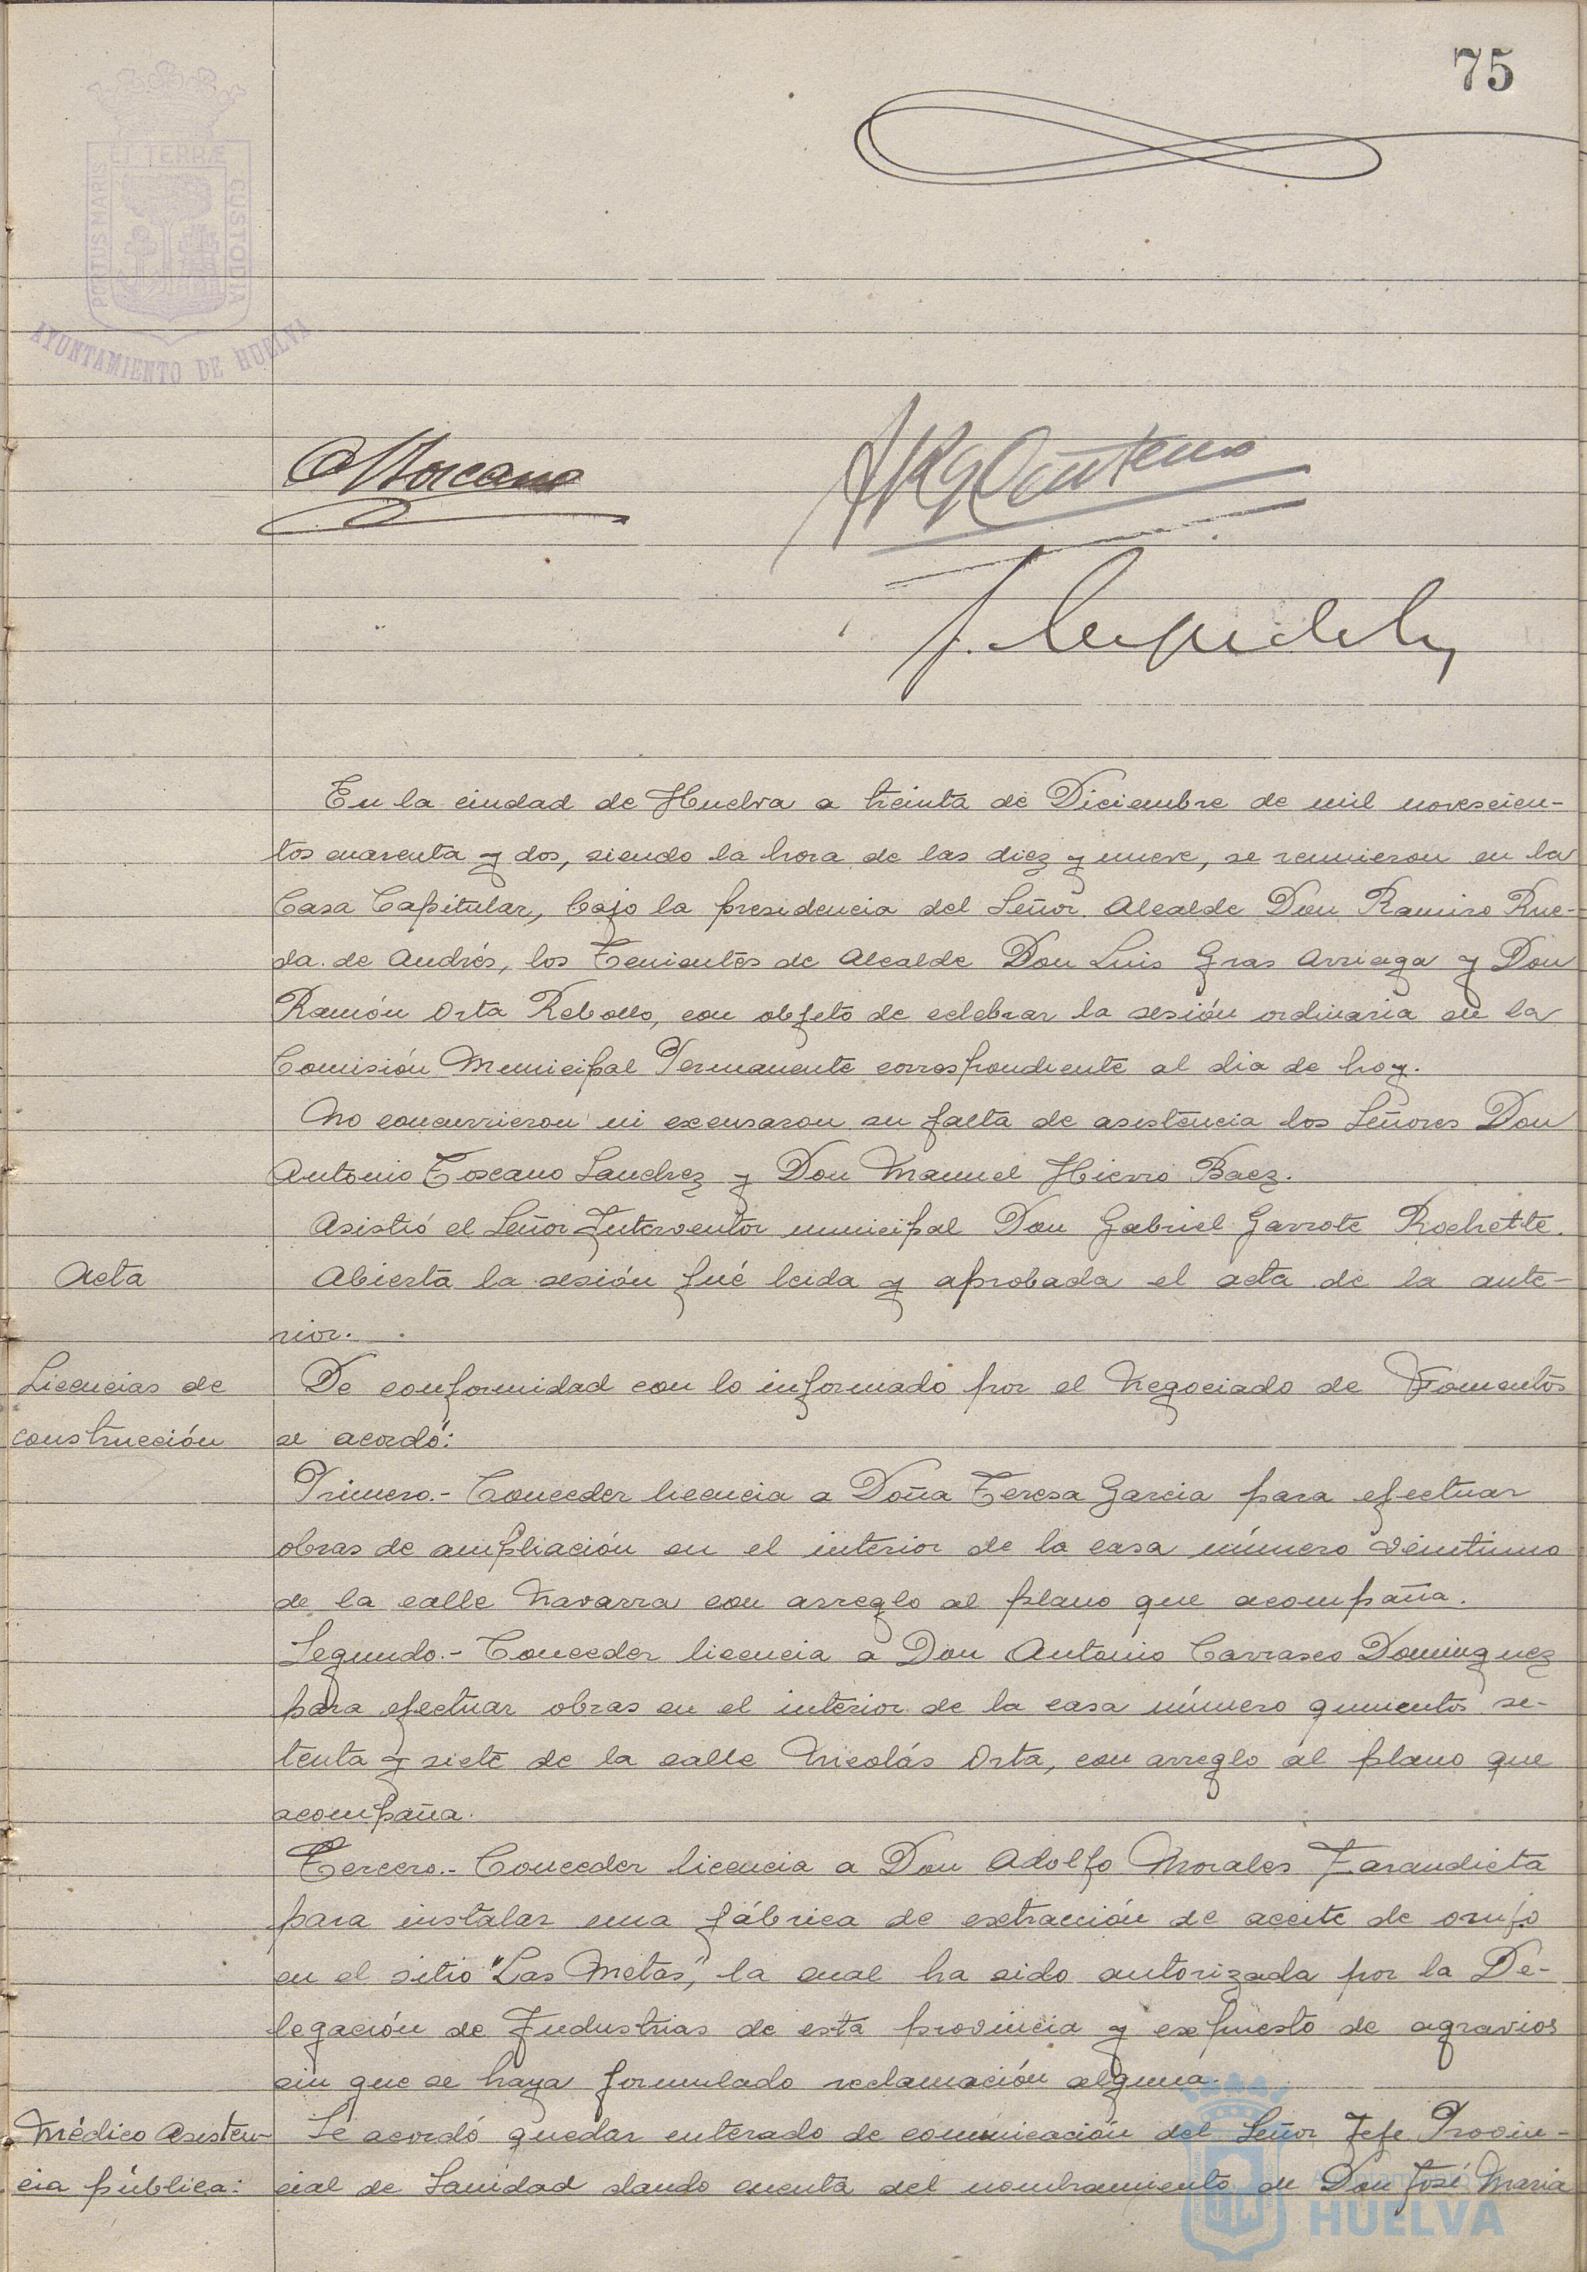 75
PORTUS MARIS ET TERRÆ CUSTODIA
AYUNTAMIENTO DE HUELVA
En la ciudad de Huelva a treinta de Diciembre de mil novescien-
tos cuarenta y dos, siendo la hora de las diez y nueve, se reunieron en la
Casa Capitular, bajo la presidencia del Señor Alcalde Don Ramiro Rue-
da de Andrés, los Tenientes de Alcalde Don Luis Gras Arriaga y Don
Ramón Orta Rebollo, con objeto de celebrar la sesión ordinaria en la
Comisión Municipal Permanente correspondiente al dia de hoy.
No concurrieron ni excusaron su falta de asistencia los Señores Don
Antonio Toscano Sanchez y Don Manuel Hierro Baez.
Asistió el Señor Interventor municipal Don Gabriel Garrote Rochette.
Acta
Abierta la sesión fué leida y aprobada el acta de la ante-
rior.
Licencias de construcción
De conformidad con lo informado por el Negociado de Fomento
se acordó:
Primero.- Conceder licencia a Doña Teresa Garcia para efectuar
obras de ampliación en el interior de la casa número veintiuno
de la calle Navarra con arreglo al plano que acompaña.
Segundo.- Conceder licencia a Don Antonio Carrasco Dominguez
para efectuar obras en el interior de la casa número quinientos se-
tenta y siete de la calle Nicolás Orta, con arreglo al plano que
acompaña.
Tercero.- Conceder licencia a Don Adolfo Morales Zarandieta
para instalar una fábrica de extracción de aceite de orujo
en el sitio "Las Metas", la cual ha sido autorizada por la De-
legación de Industrias de esta provincia y expuesto de agravios
sin que se haya formulado reclamación alguna.
Médico Asisten-
cia pública:
Se acordó quedar enterado de comunicación del Señor Jefe Provin-
cial de Sanidad dando cuenta del nombramiento de Don José Maria
Ayuntamiento
HUELVA